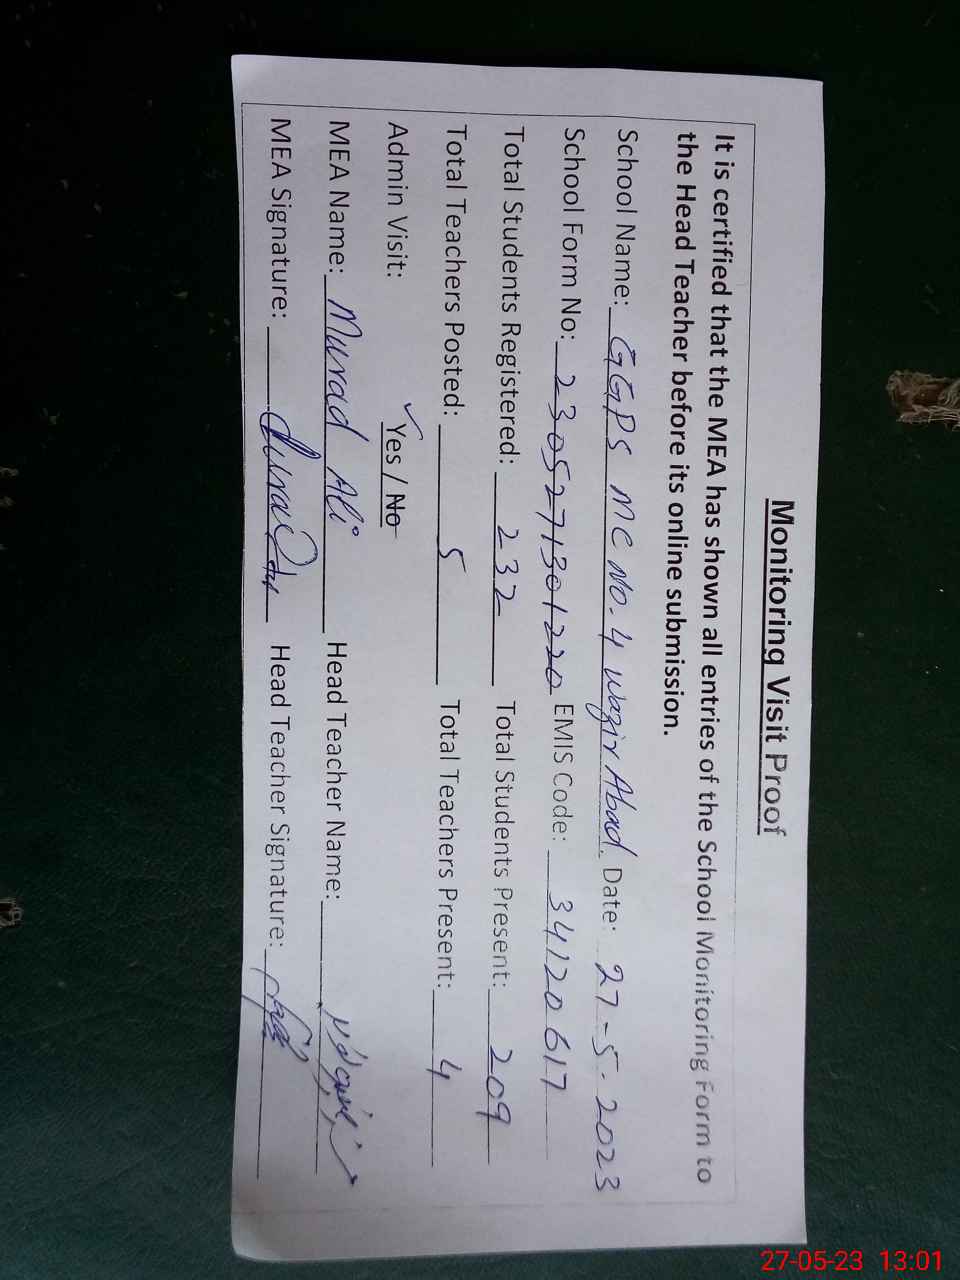 Monitoring Visit Proof
It is certified that the MEA has shown all entries of the School Monitoring Form to
the Head Teacher before its online submission.
School Name: GGPS MC No. 4 Wazir Abad. Date: 27-5-2023
School Form No: 2305271301220 EMIS Code: 34120617
Total Students Registered: 232 Total Students Present: 209
Total Teachers Posted: 5 Total Teachers Present: 4
Admin Visit: ✓Yes / No
MEA Name: Murad Ali Head Teacher Name:
MEA Signature: Head Teacher Signature:
27-05-23 13:01